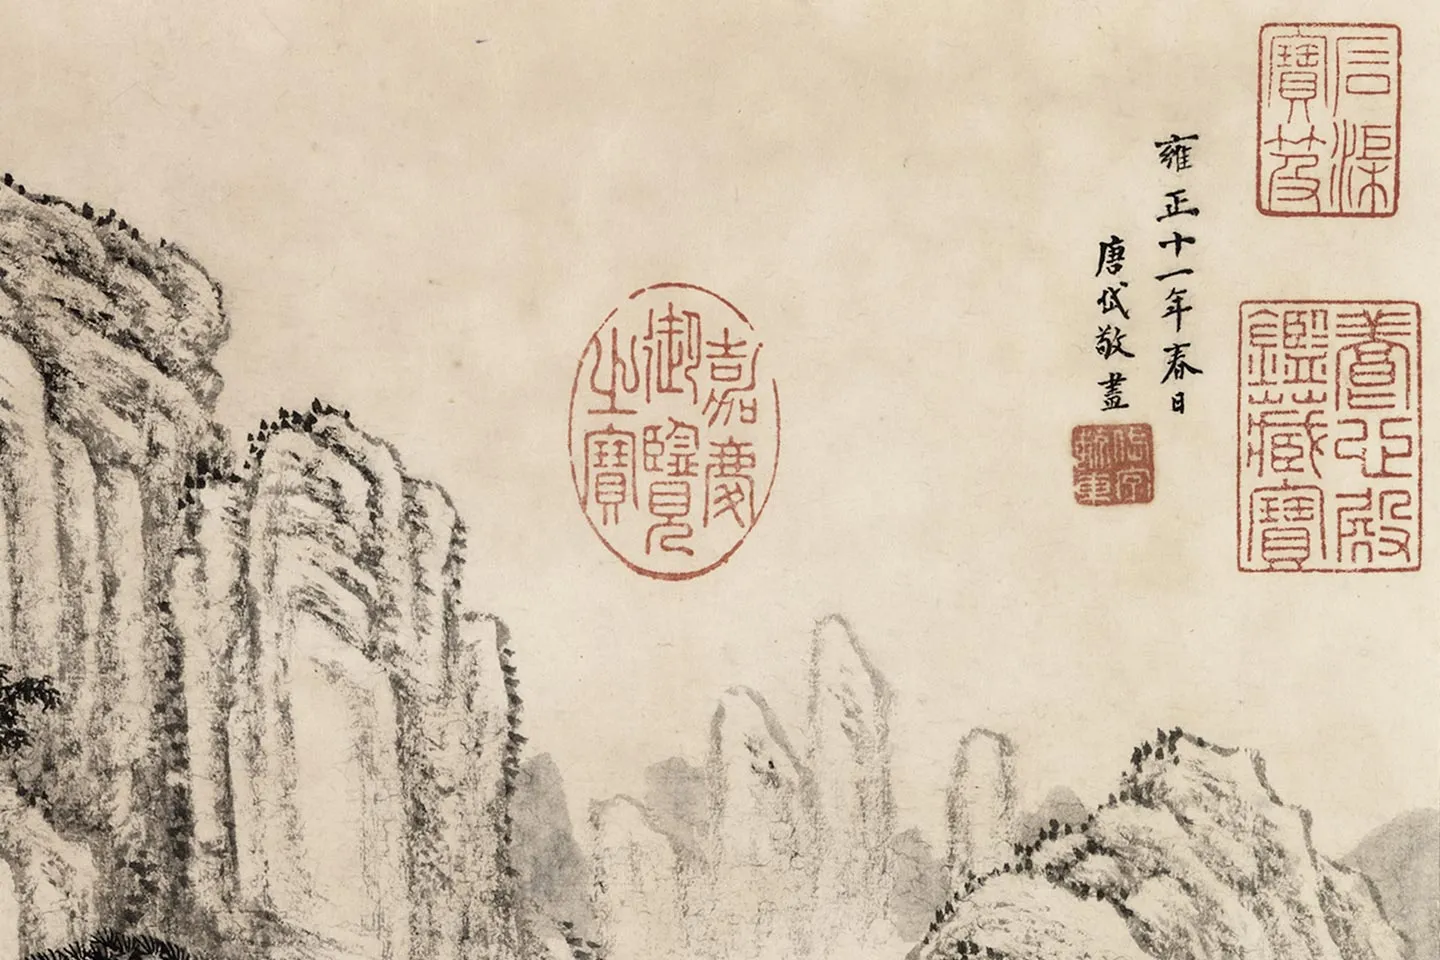 石渠
寶笈
養心殿
鑑藏寶
雍正十一年春日
唐岱敬畫
嘉慶
御覽
之寶